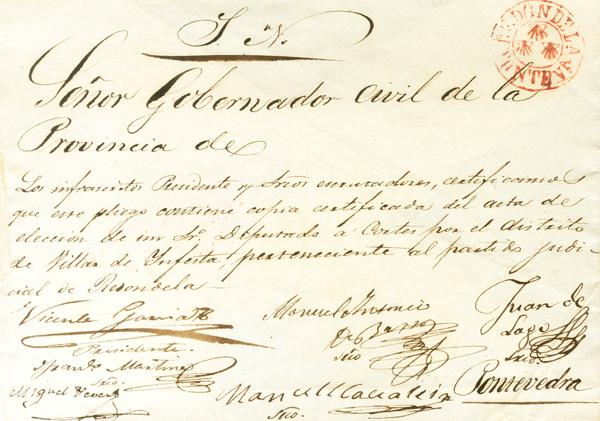 S. N.
REDONDELA
PONTEVEDRA
Señor Gobernador Civil de la
Provincia de
Los infrascritos Presidente y Srios escrutadores, certificamos
que este pliego contiene copia certificada del acta de
elección de un Sr. Diputado a Cortes por el distrito
de Villar de Infesta, perteneciente al partido judi-
cial de Redondela
Vicente Garcia
Presidente.
Manuel Antonio
Srio
Juan de
Lago
Srio.
Martinez
Srio.
Miguel
Manuel
Srio.
Pontevedra